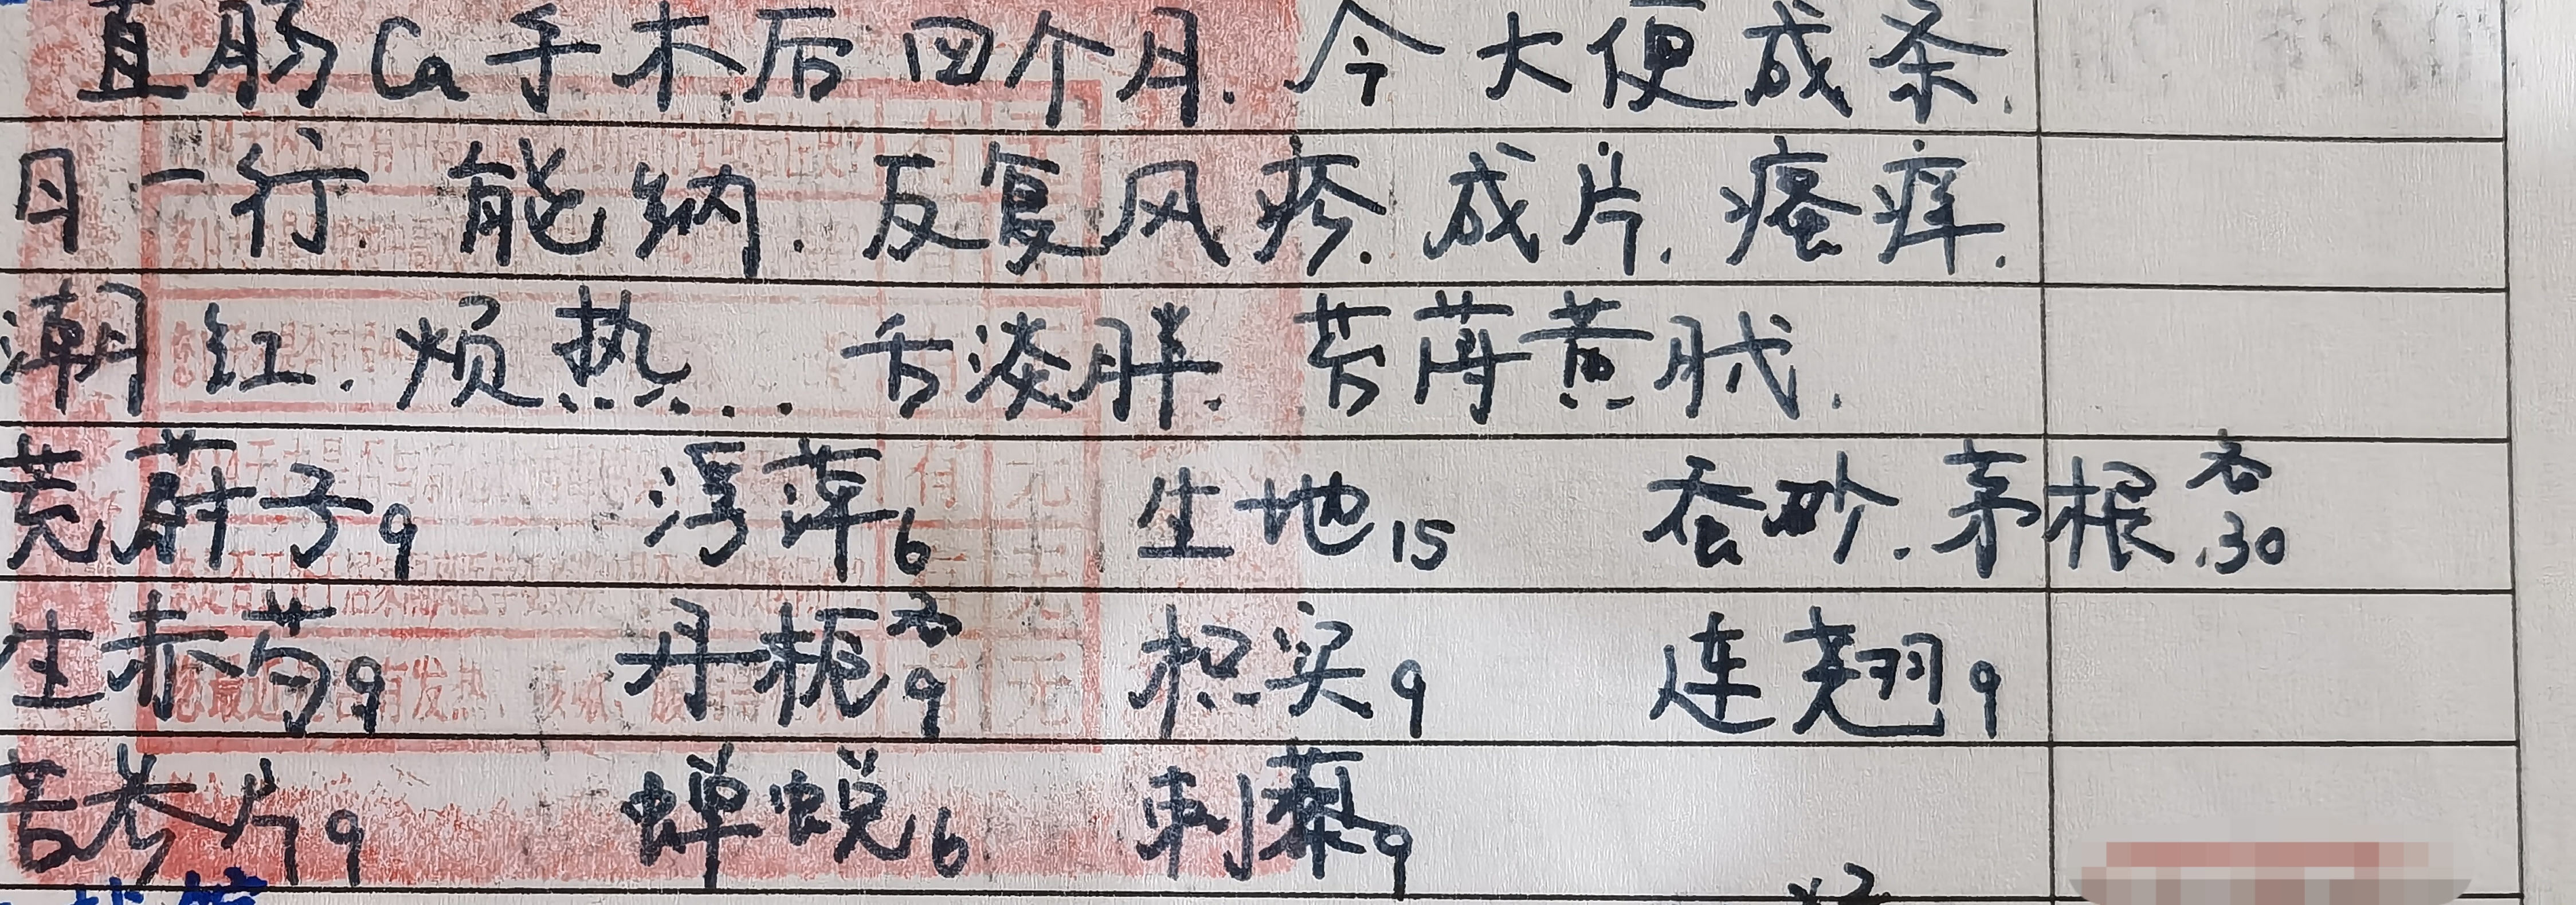 直肠Ca手术后四个月.今大便成条.
日一行.能纳.反复风疹.成片.瘙痒.
潮红.烦热..舌淡胖.苔薄黄腻.
茺蔚子9 浮萍6 生地15 蚕砂.茅根各30
生赤芍9 丹栀各9 枳实9 连翘9
苦参片9 蝉蜕6 刺蒺藜9
x2